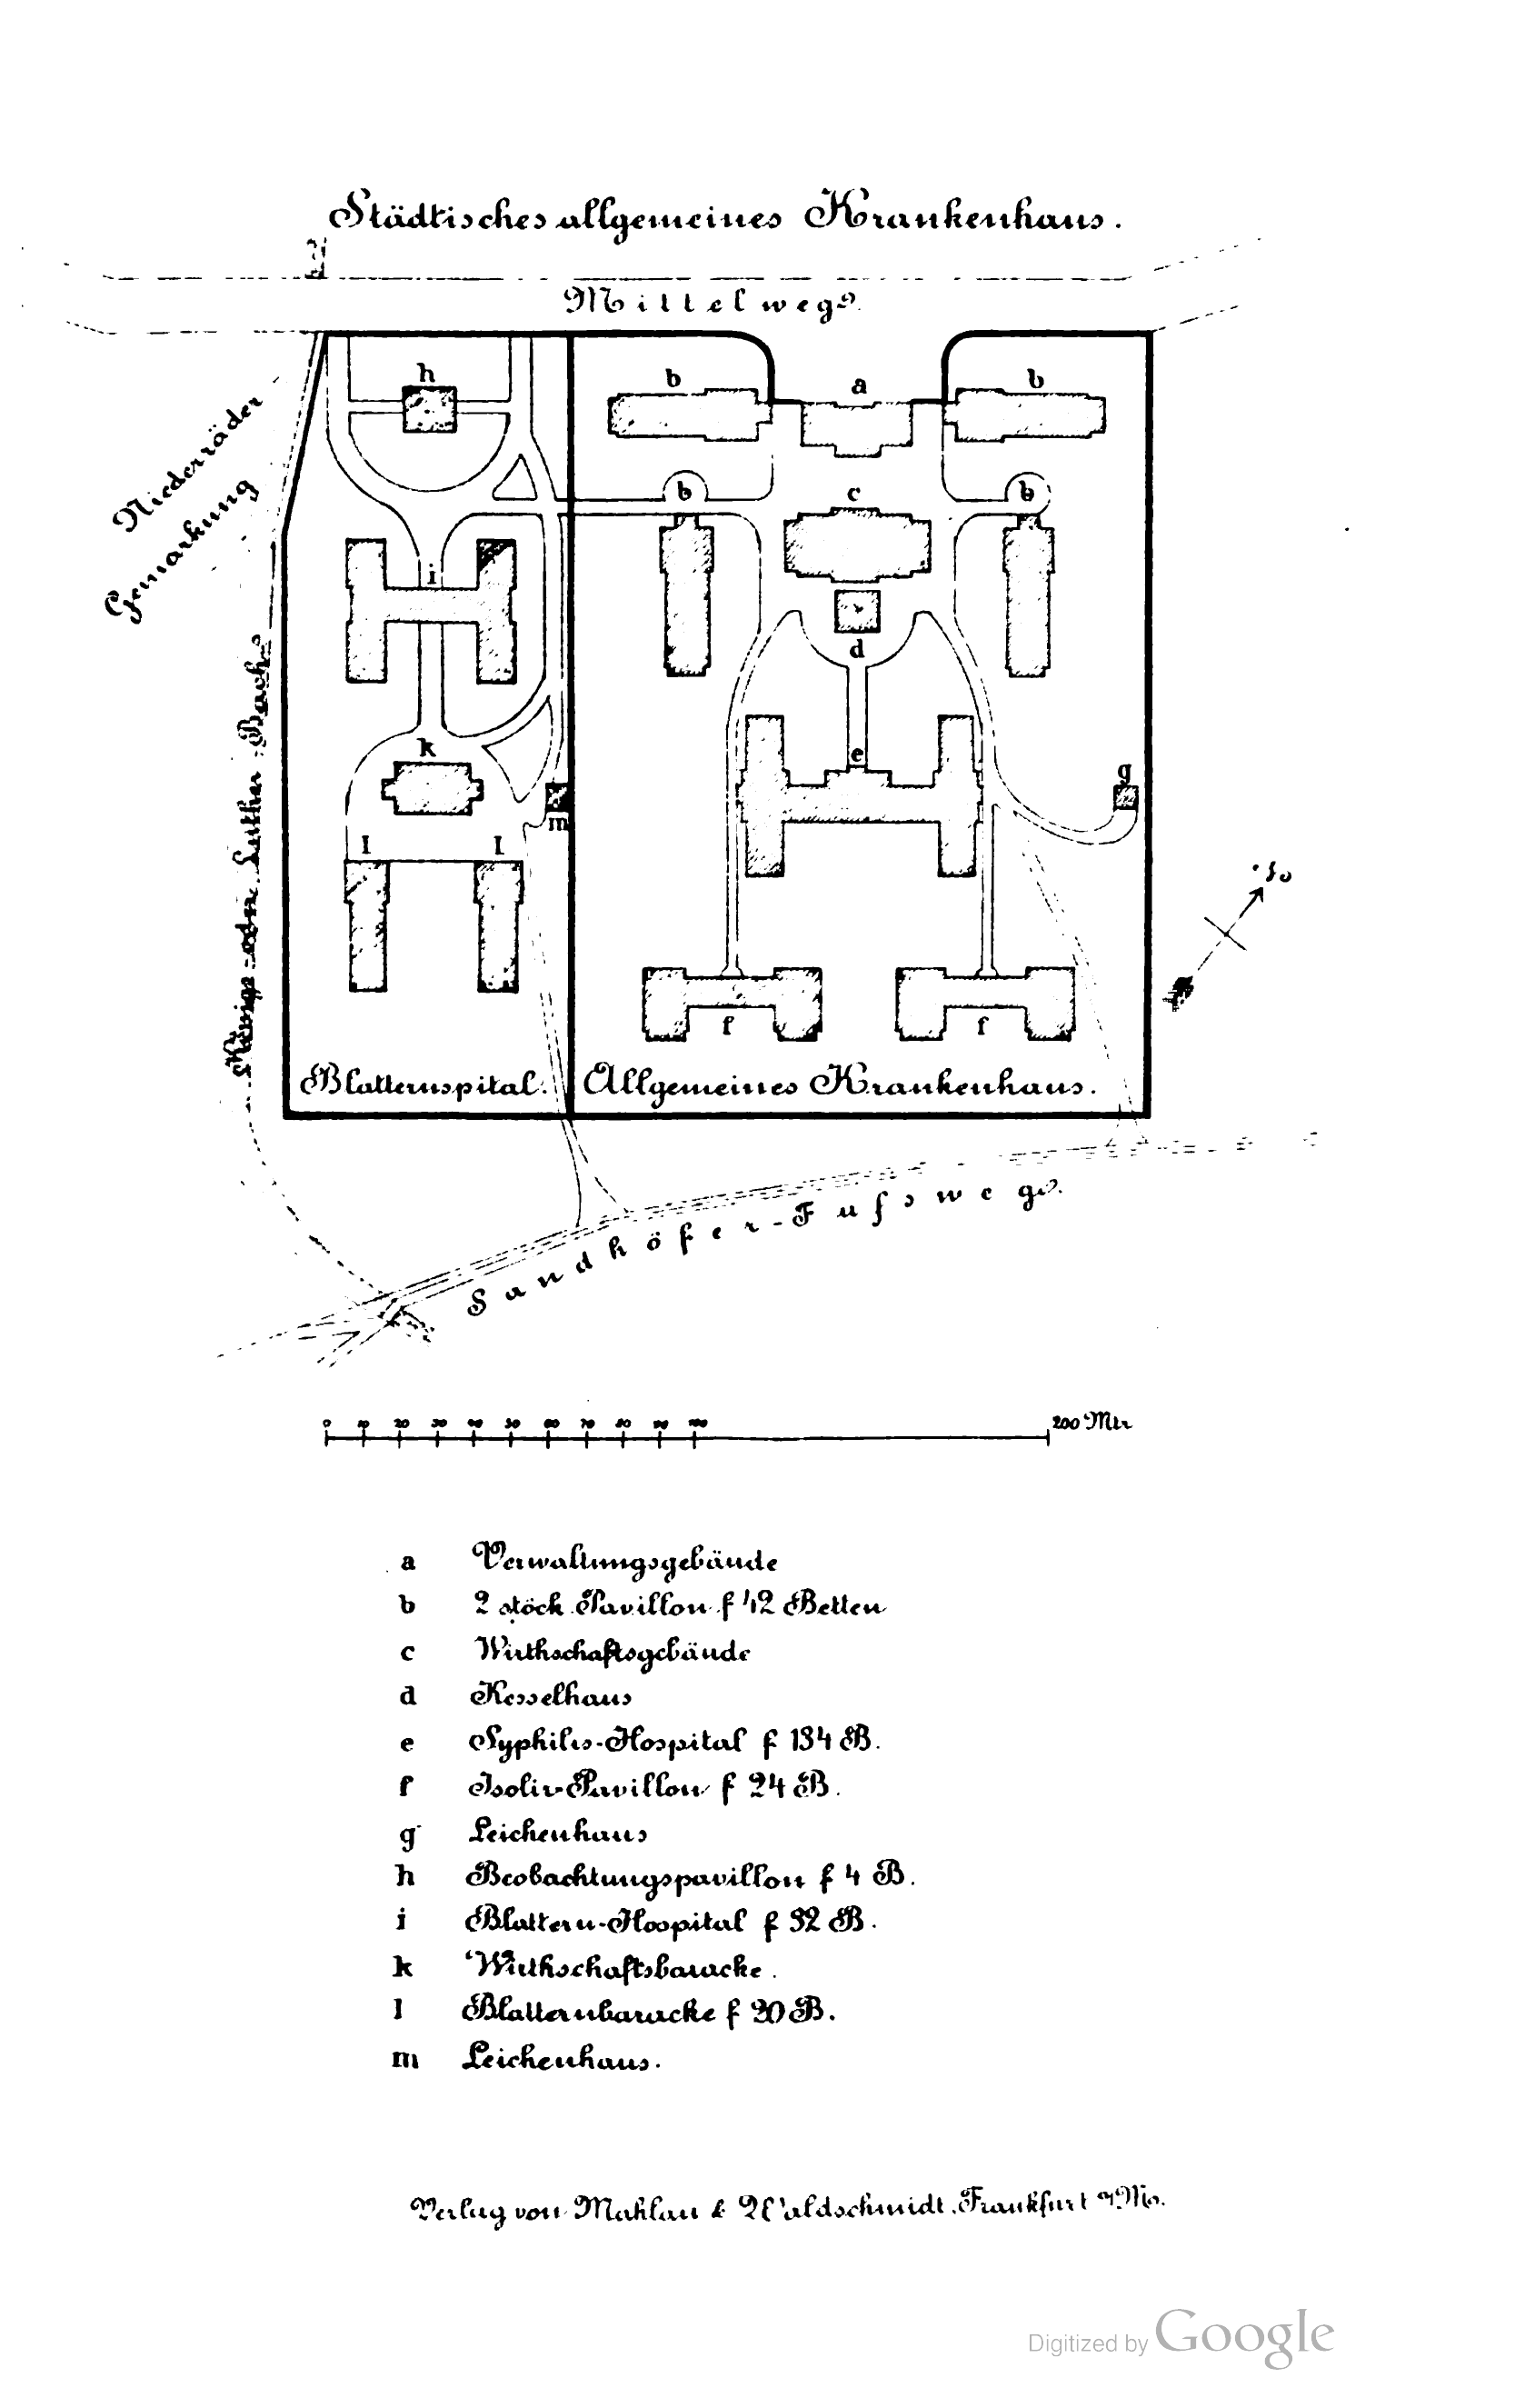 Städtisches allgemeines Krankenhaus.
Mittelweg.
Niederräder
Gemarkung
Königs- oder Luther-Bach
h
b
a
b
b
c
b
i
d
k
e
g
m
l
l
f
f
Blatternspital.
Allgemeines Krankenhaus.
Sandhöfer-Fussweg.
0 10 20 30 40 50 60 70 80 90 100 200 Mtr
a Verwaltungsgebäude
b 2 stöck. Pavillon f 42 Betten
c Wirthschaftsgebäude
d Kesselhaus
e Syphilis-Hospital f 134 B.
f Isolir-Pavillon f 24 B.
g Leichenhaus
h Beobachtungspavillon f 4 B.
i Blattern-Hospital f 32 B.
k Wirthschaftsbaracke.
l Blatternbaracke f 20 B.
m Leichenhaus.
Verlag von Mahlau & Waldschmidt, Frankfurt a/M.
Digitized by Google